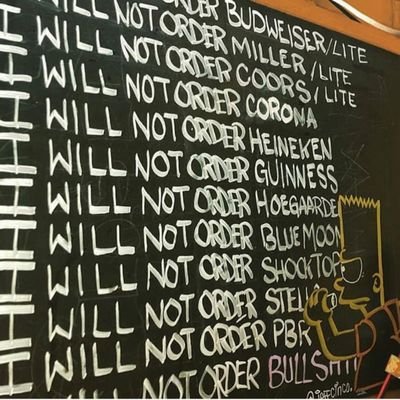 I WILL NOT ORDER BUDWEISER/LITE
I WILL NOT ORDER MILLER/LITE
I WILL NOT ORDER COORS/LITE
I WILL NOT ORDER CORONA
I WILL NOT ORDER HEINEKEN
I WILL NOT ORDER GUINNESS
I WILL NOT ORDER HOEGAARDE
I WILL NOT ORDER BLUE MOON
I WILL NOT ORDER SHOCKTOP
I WILL NOT ORDER STELL
I WILL NOT ORDER PBR
I WILL NOT ORDER BULLSHIT